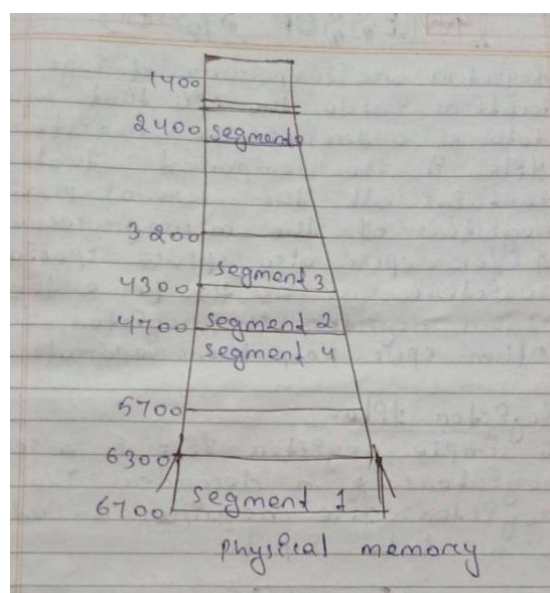 1400
2400 segment 0
3200
segment 3
4300
4700 segment 2
segment 4
5700
6300
6700 segment 1
physical memory